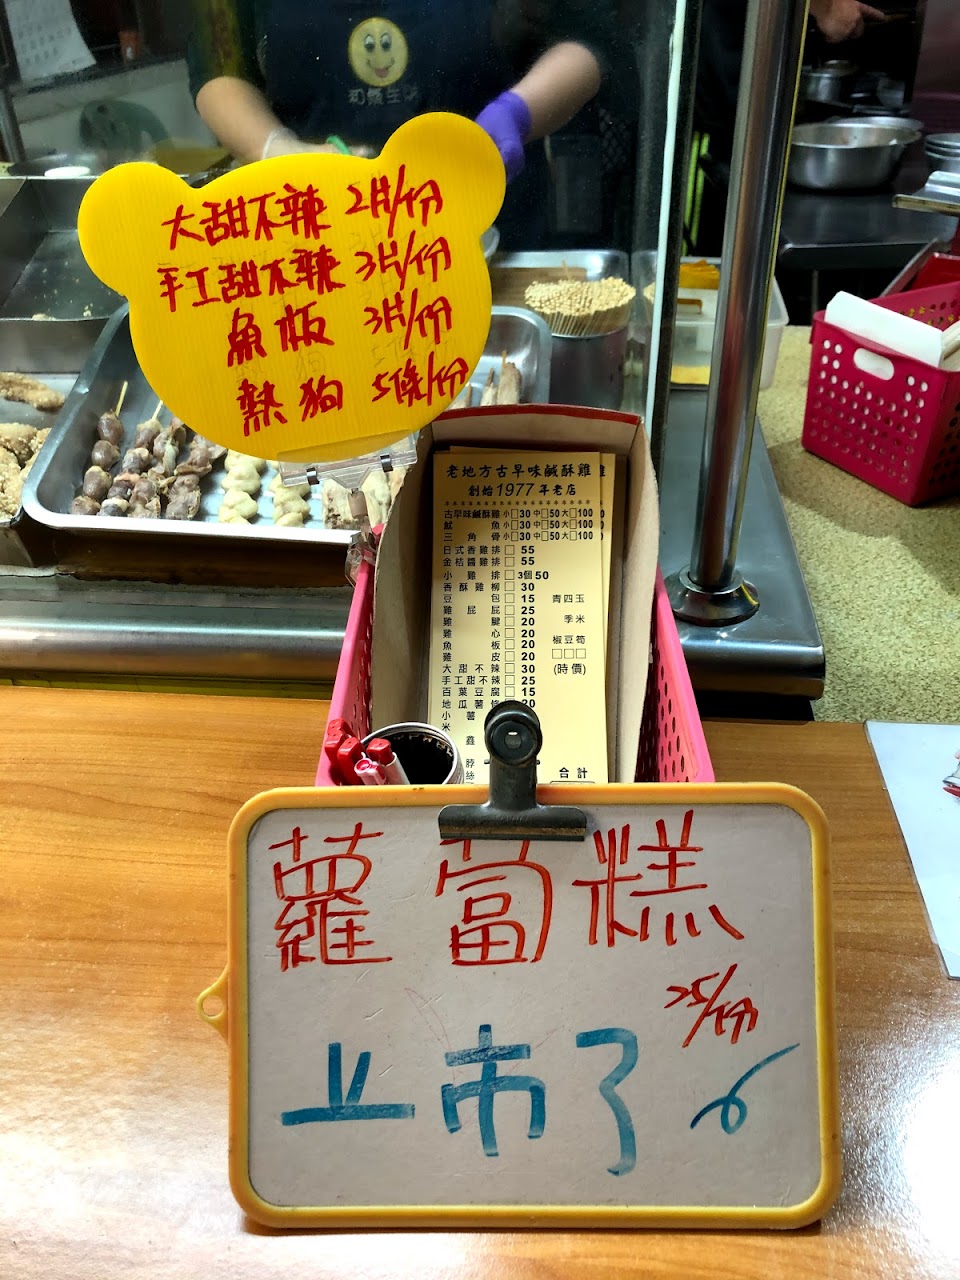 大甜不辣 2片/份
手工甜不辣 3片/份
魚板 3片/份
熱狗 5條/份
老地方古早味鹹酥雞
創始1977年老店
古早味鹹酥雞 小□30 中□50 大□100
魷魚 小□30 中□50 大□100
三角骨 小□30 中□50 大□100
日式香雞排□ 55
金桔醬雞排□ 55
小雞排□ 3個50
香酥雞柳□ 30
豆包□ 15
雞屁屁□ 25
雞腱□ 20
雞心□ 20
魚板□ 20
雞皮□ 20
大甜不辣□ 30
手工甜不辣□ 25
百葉豆腐□ 15
地瓜薯條□ 20
小薯
米
鑫
脖
絲
青四玉
季米
椒豆筍
□□□
(時價)
合計
蘿蔔糕
25/份
上市了